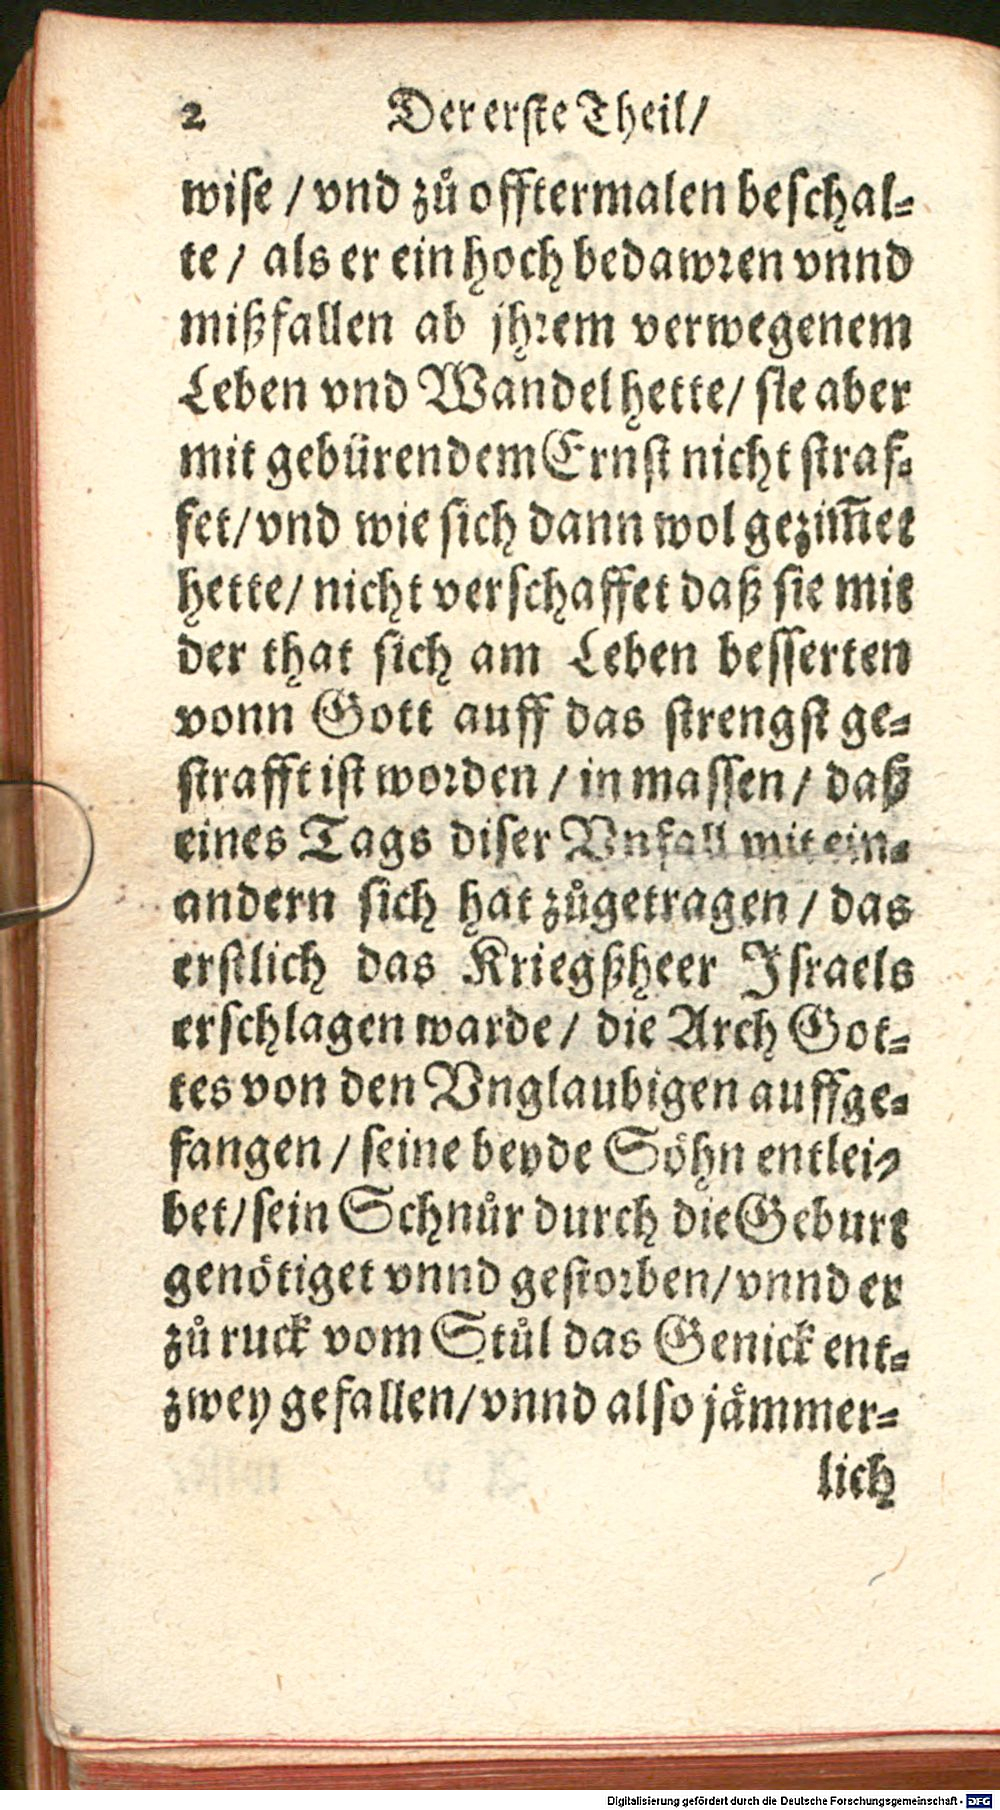 2 Der erste Theil/
wise / vnd zů offtermalen beschal-
te / als er ein hoch bedawren vnnd
mißfallen ab jhrem verwegenem
Leben vnd Wandel hette/ sie aber
mit gebürendem Ernst nicht straf-
fet/ vnd wie sich dann wol gezim̃et
hette/ nicht verschaffet daß sie mit
der that sich am Leben besserten
vonn Gott auff das strengst ge-
strafft ist worden / in massen / daß
eines Tags diser Vnfall mit ein-
andern sich hat zůgetragen / das
erstlich das Kriegßheer Israels
erschlagen warde / die Arch Got-
tes von den Vnglaubigen auffge-
fangen / seine beyde Söhn entlei-
bet/ sein Schnůr durch die Geburt
genötiget vnnd gestorben/ vnnd er
zů ruck vom Stůl das Genick ent-
zwey gefallen/ vnnd also jämmer-
lich
Digitalisierung gefördert durch die Deutsche Forschungsgemeinschaft - DFG